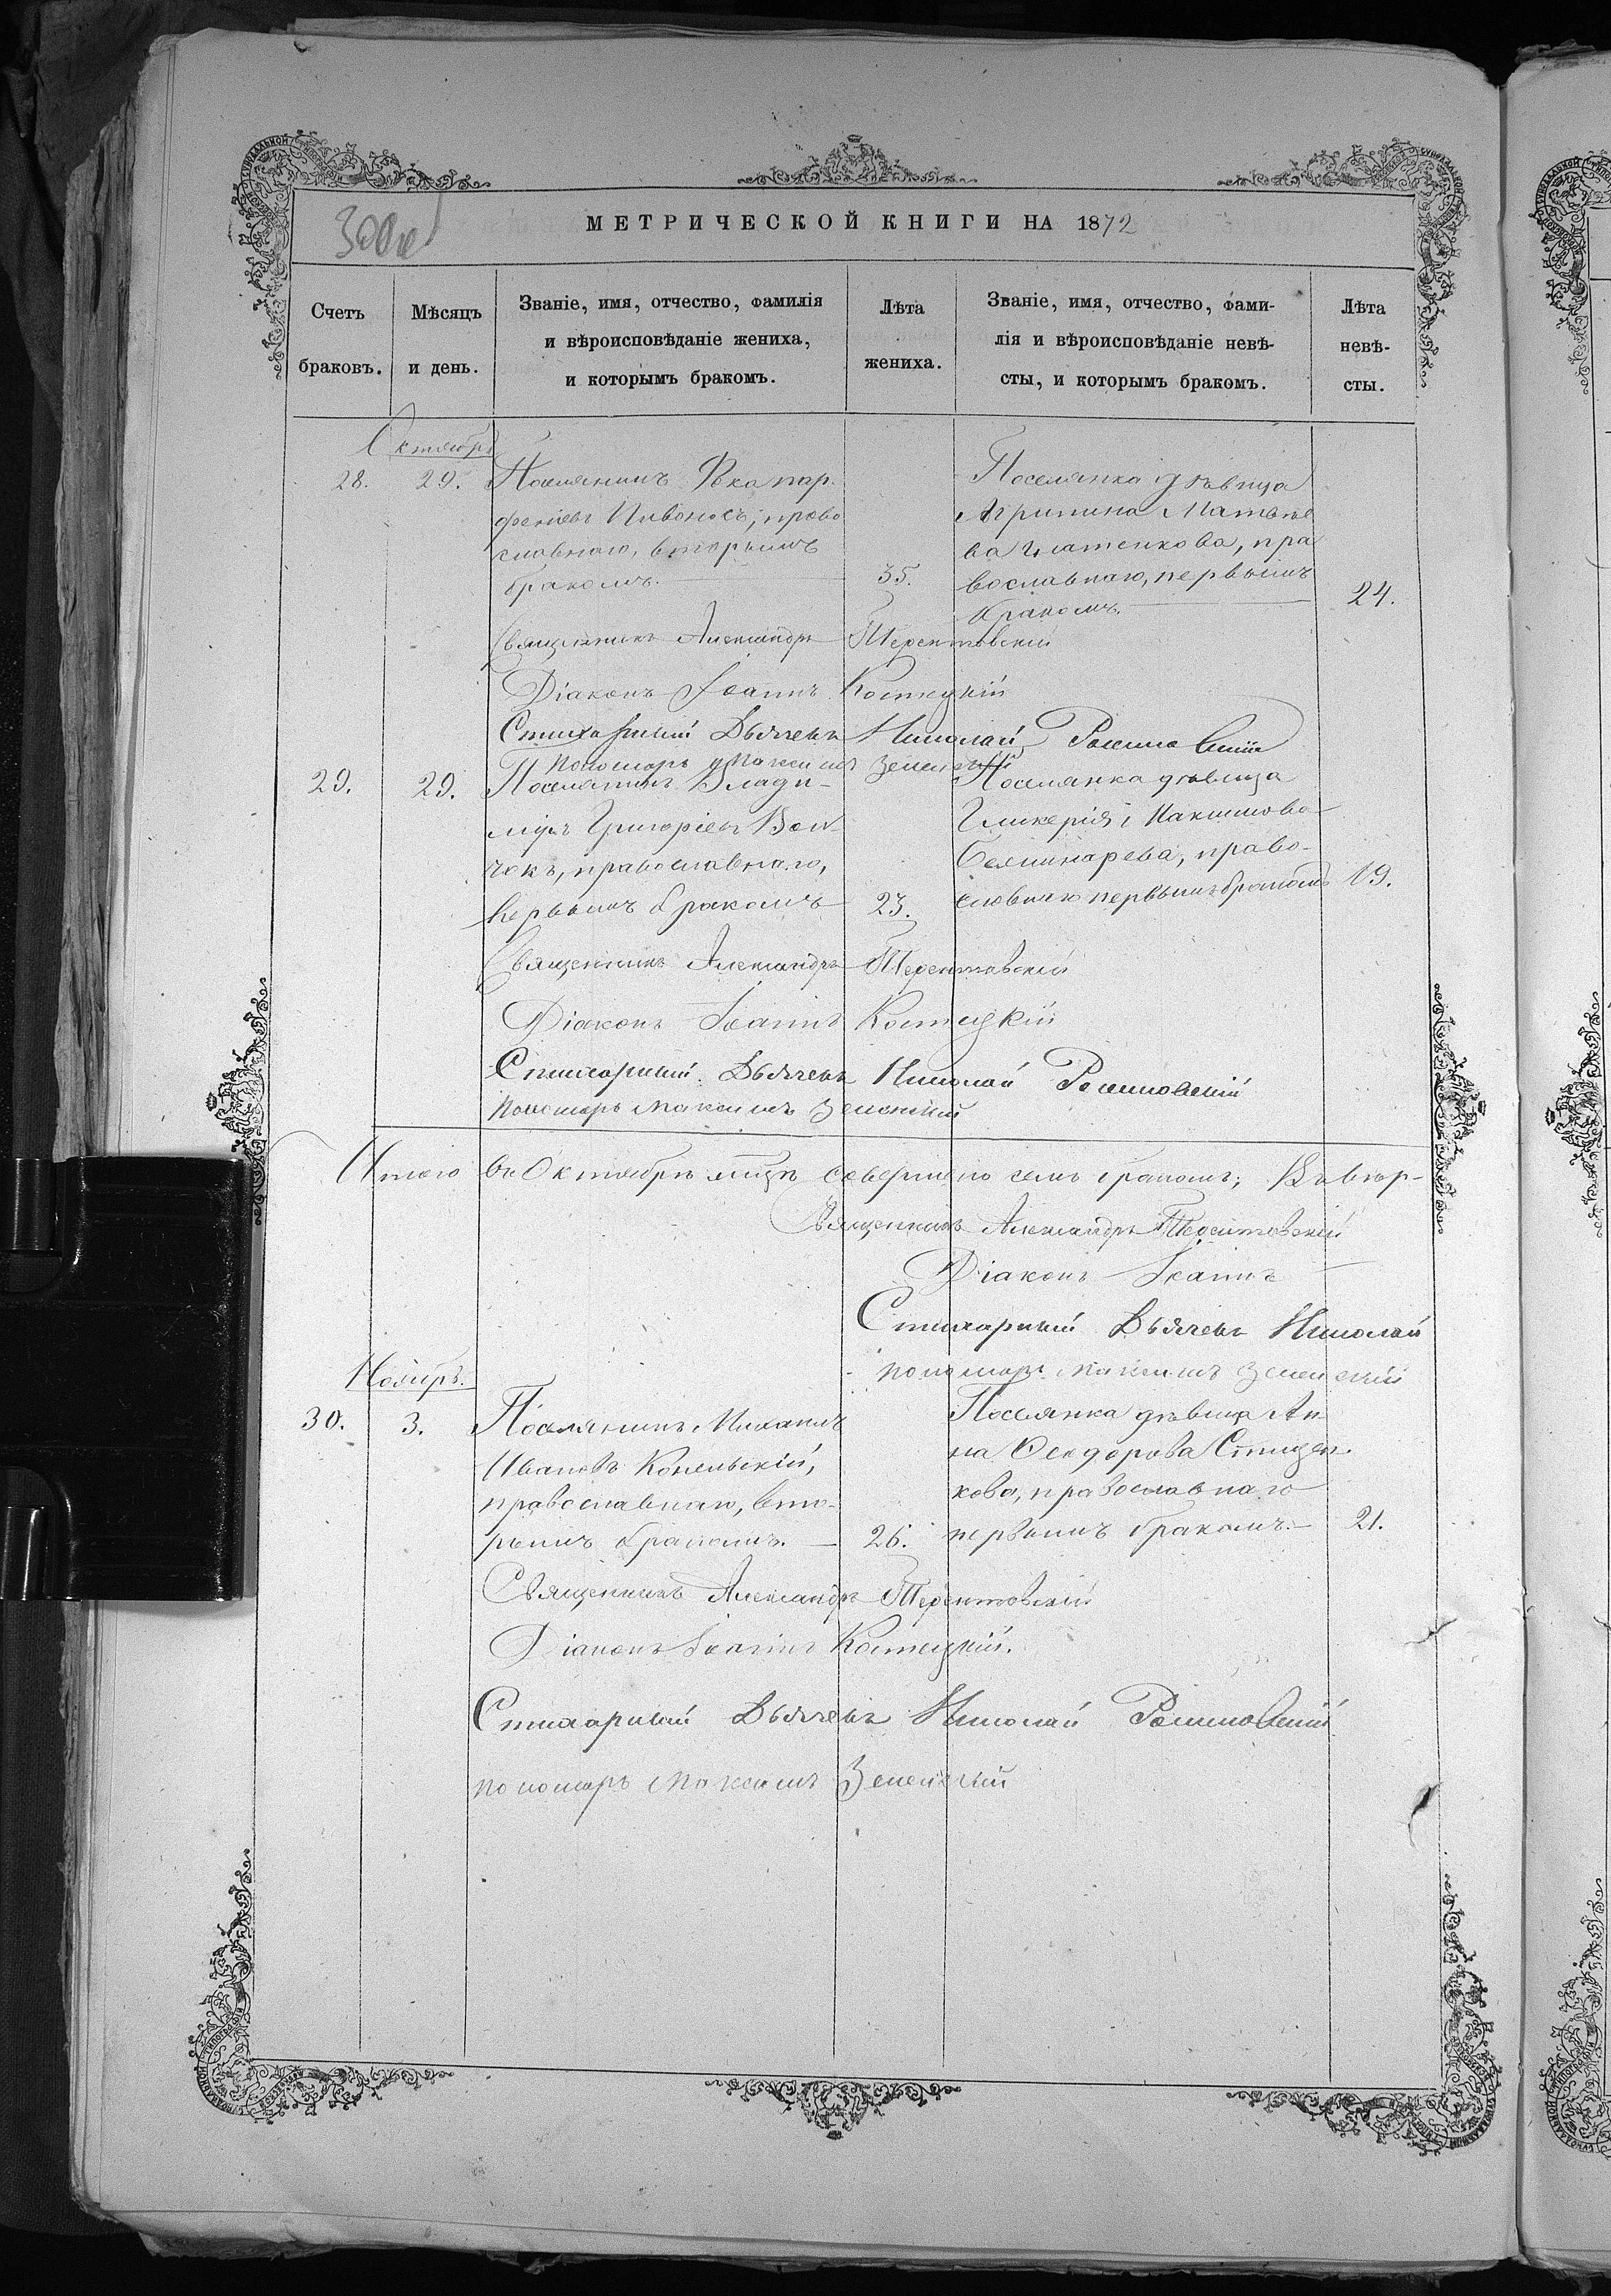 МЕТРИЧЕСКОЙ КНИГИ НА 1872
Счетъ браковъ.
Мѣсяцъ и день.
Званіе, имя, отчество, фамилія
и вѣроисповѣданіе жениха,
и которымъ бракомъ.
Лѣта жениха.
Званіе, имя, отчество, фами-
лія и вѣроисповѣданіе невѣ-
сты, и которымъ бракомъ.
Лѣта невѣ-
сты.
Октябрь
28. 29.
Поселянинъ Фока пар
феніевъ Пивоносъ, право
славнаго, вторымъ
бракомъ.
35.
Поселянка дѣвица
Агрипина Матвѣе
ва, пра
вославнаго, первымъ
бракомъ.
24.
Священникъ Александръ
Діаконъ Іоаннъ Костецкій
Стихарный Дьячекъ Николай
Пономарь Максимъ Зеленскій
29. 29.
Поселянинъ Влади-
міръ Григоріевъ Вол
чокъ, православнаго,
первымъ бракомъ
23.
Поселянка дѣвица
Гликерія Максимова
православнаго первымъ бракомъ
19.
Священникъ Александръ
Діаконъ Іоаннъ Костецкій
Стихарный Дьячекъ Николай
Пономарь Максимъ Зеленскій
Итого въ Октябрѣ мѣсяцѣ совершено семь браковъ;
Священникъ Александръ
Діаконъ Іоаннъ
Стихарный Дьячекъ Николай
пономарь Максимъ Зеленскій
Ноябрь.
30. 3.
Поселянинъ Михаилъ
Ивановъ Конельскій,
православнаго, вто-
рымъ бракомъ.
26.
Поселянка дѣвица Ан
на Ѳеодорова Стицен
кова, православнаго
первымъ бракомъ.
21.
Священникъ Александръ
Діаконъ Іоаннъ Костецкій.
Стихарный Дьячекъ Николай
пономарь Максимъ Зеленскій